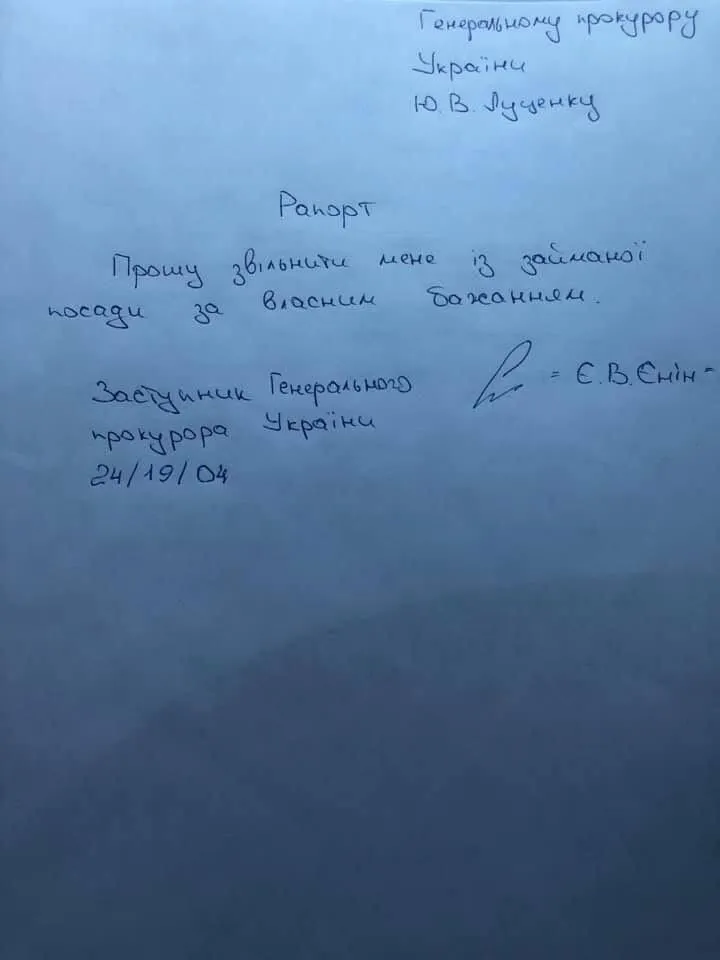 Генеральному прокурору
України
Ю.В. Луценку
Рапорт
Прошу звільнити мене із займаної
посади за власним бажанням.
Заступник Генерального
прокурора України
= Є.В.Єнін =
24/19/04